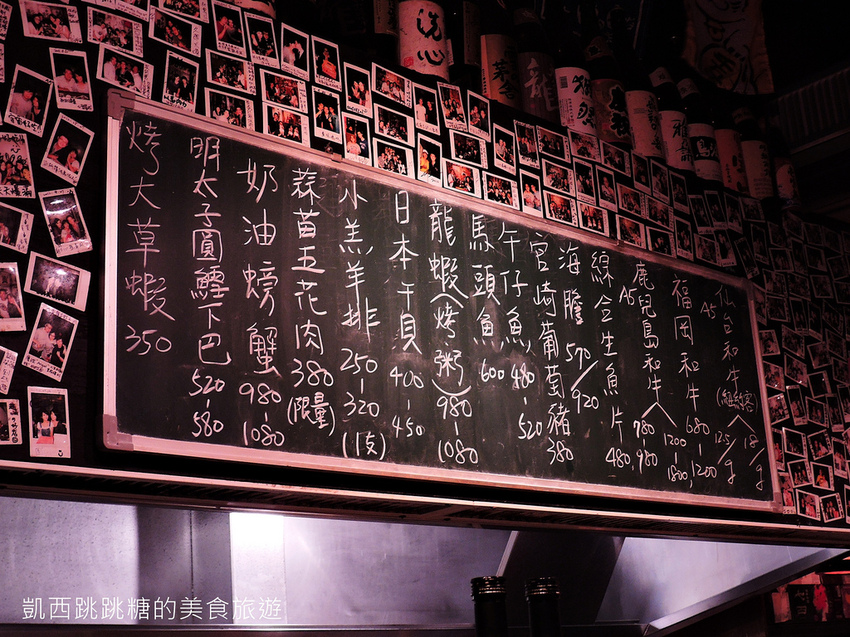 洗心
仙台和牛
A5
125/g
18/g
福岡和牛
680-1200
1200-1800
鹿兒島和牛
A5
780
980
綜合生魚片
480、980
海膽 570/920
宮崎葡萄豬 380
午仔魚 480-520
馬頭魚 600
龍蝦(烤粥) 980-1080
日本干貝 400-450
小羔羊排 250-320 (1支)
蒜苗五花肉 380 (限量)
奶油螃蟹 980-1080
明太子圓鱈下巴 520-580
烤大草蝦 350
凱西跳跳糖的美食旅遊